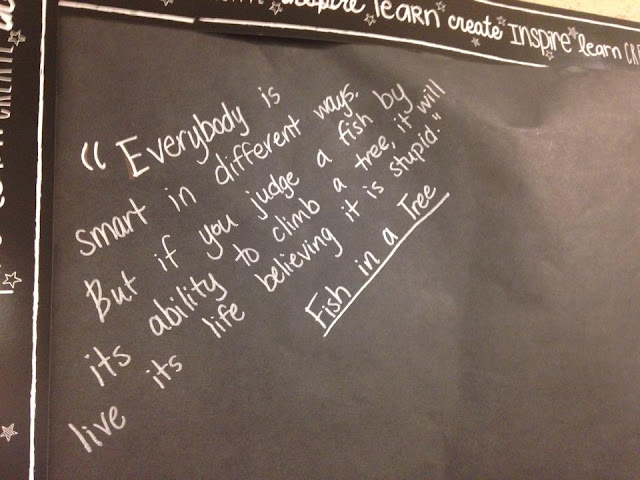 inspire learn create INSPIRE learn
CREATE
“Everybody is
smart in different ways.
But if you judge a fish by
its ability to climb a tree, it will
live its life believing it is stupid."
Fish in a Tree